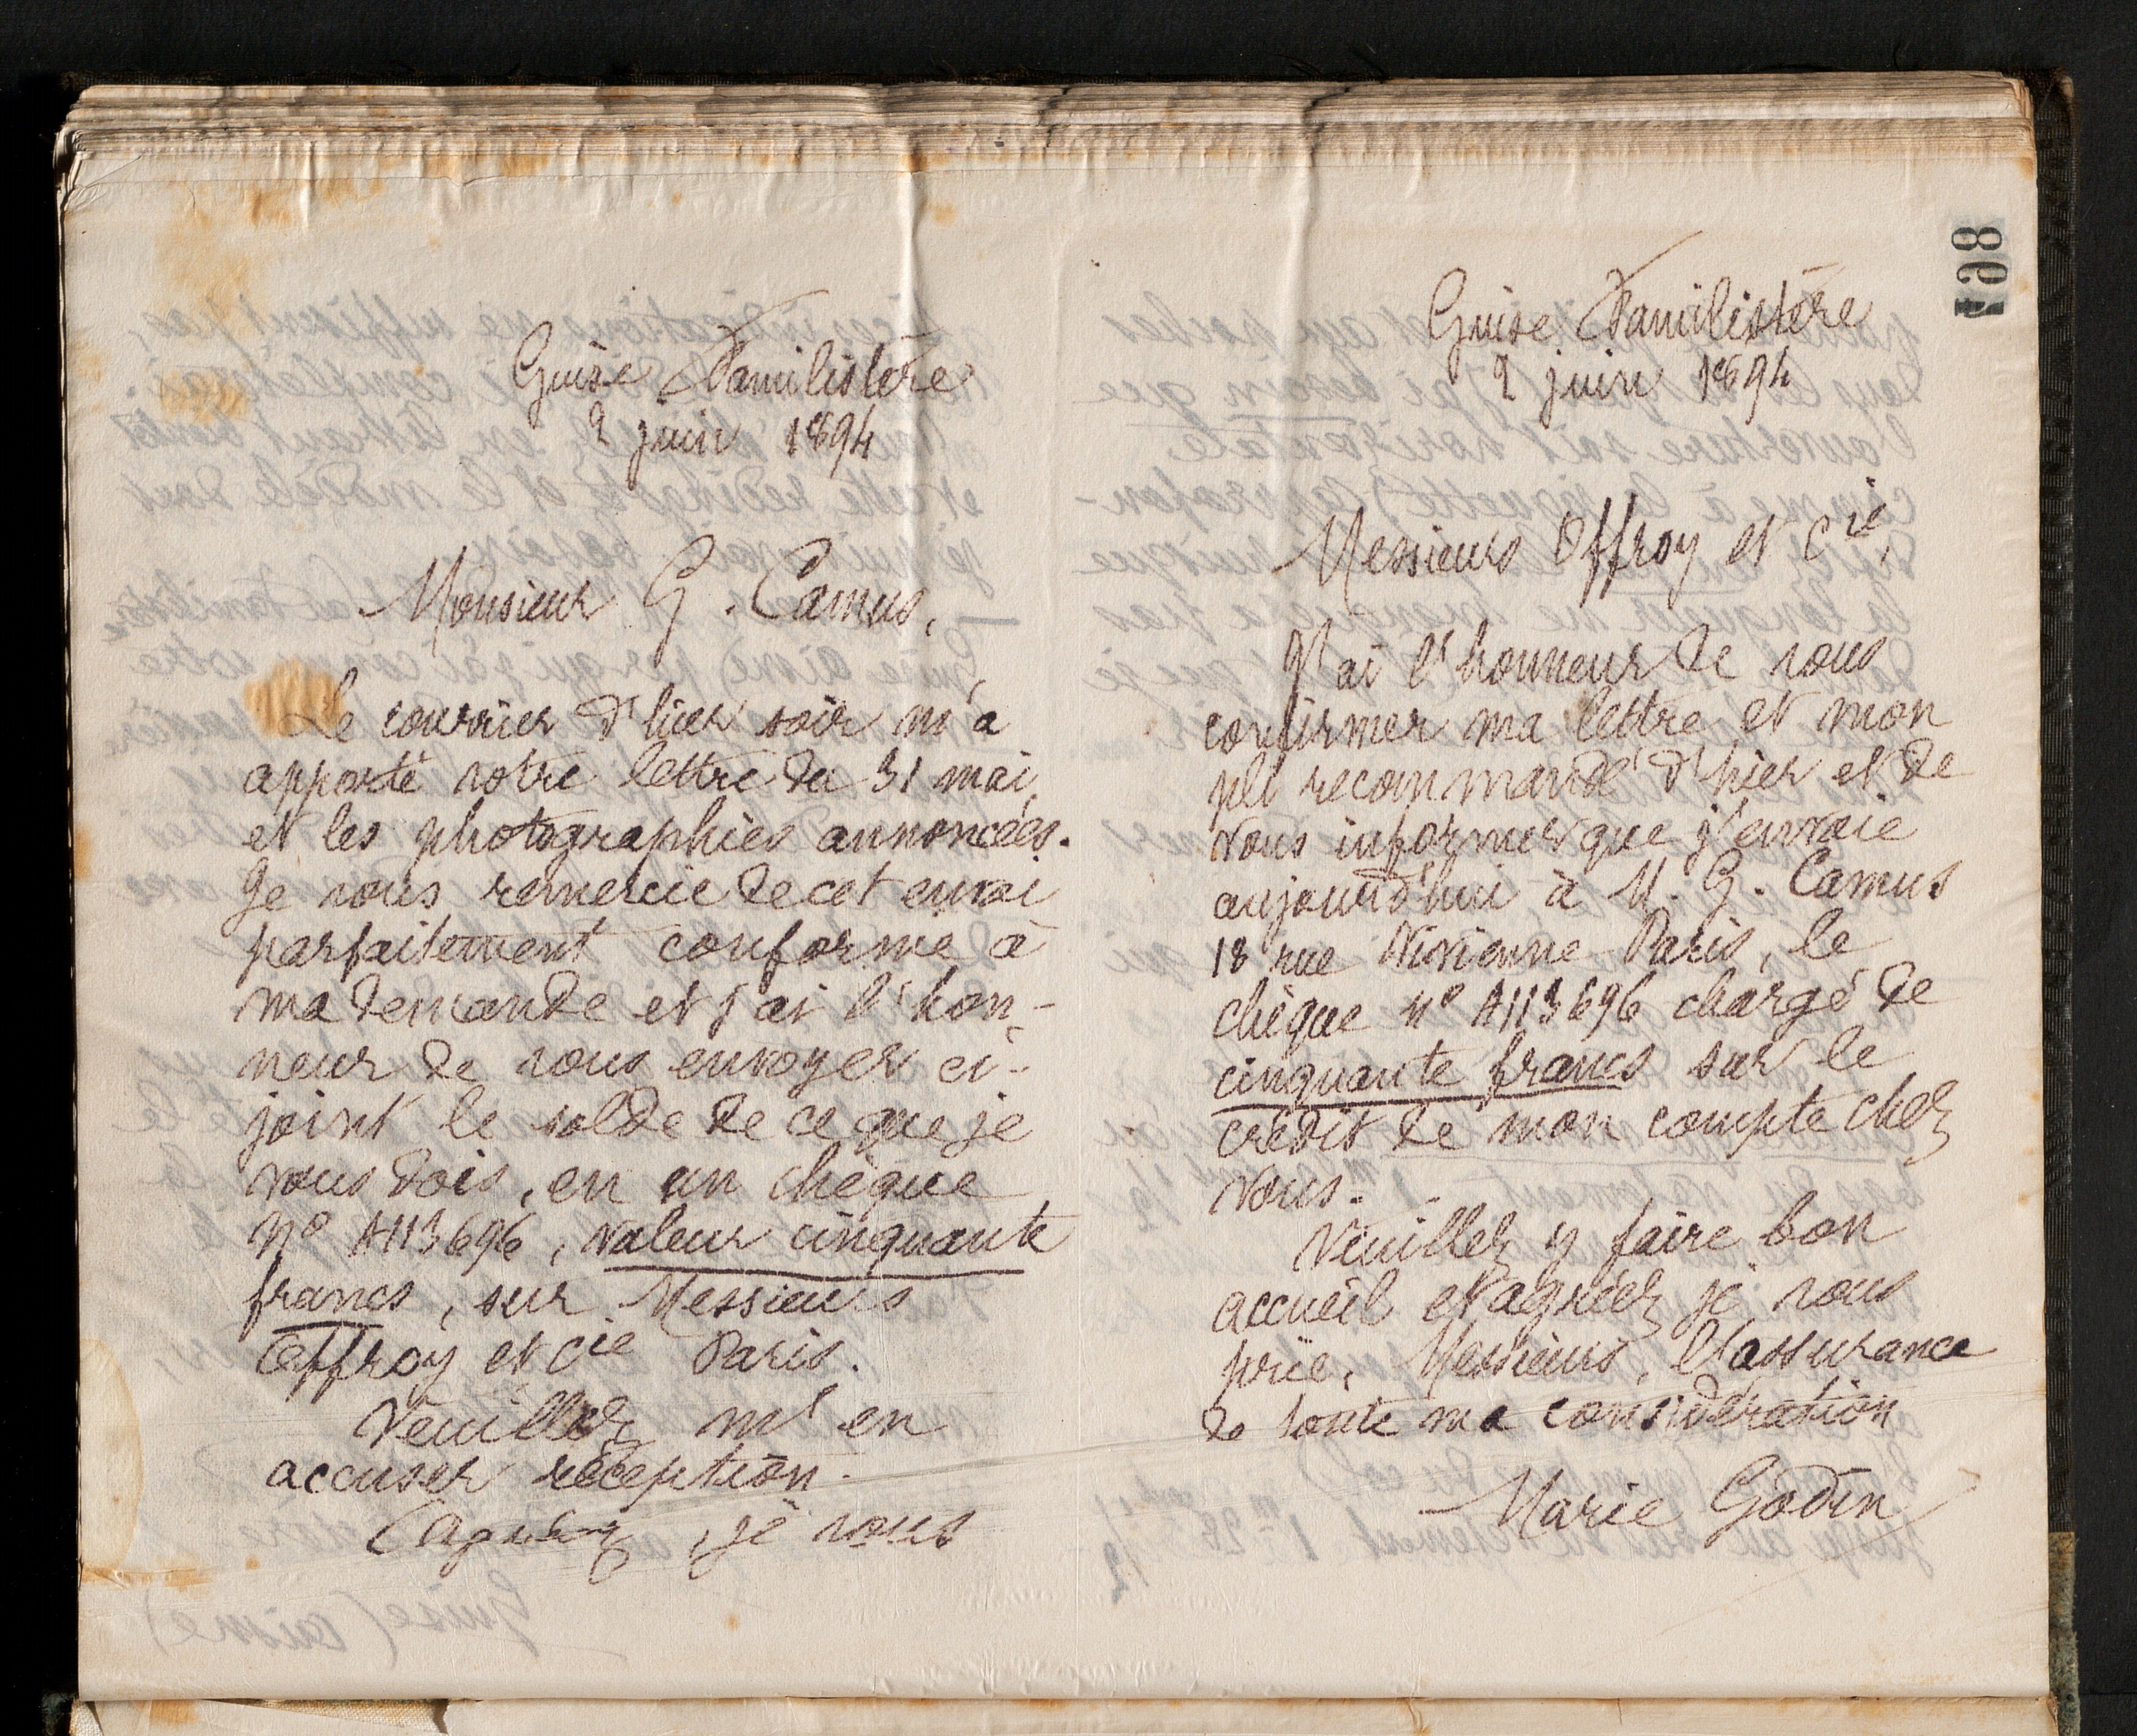 Guise Familistère
2 juin 1894
Monsieur G. Camus,
Le courrier d'hier soir m'a
apporté votre lettre du 31 mai
et les photographies annoncées.
Je vous remercie de cet envoi
parfaitement conforme à
ma demande et j'ai l'hon-
neur de vous envoyer ci-
joint le solde de ce que je
vous dois, en un chèque
No A113696, valeur cinquante
francs, sur Messieurs
Offroy et Cie Paris.
Veuillez m'en
accuser réception.
Agréez, je vous
Guise Familistère
2 juin 1894
Messieurs Offroy et Cie,
J'ai l'honneur de vous
confirmer ma lettre et mon
pli recommandé d'hier et de
vous informer que j'envoie
aujourd'hui à M. G. Camus
18 rue Vivienne Paris, le
chèque No A113696 chargé de
cinquante francs sur le
crédit de mon compte chez
vous.
Veuillez y faire bon
accueil et agréez, je vous
prie, Messieurs, l'assurance
de toute ma considération
Marie Godin